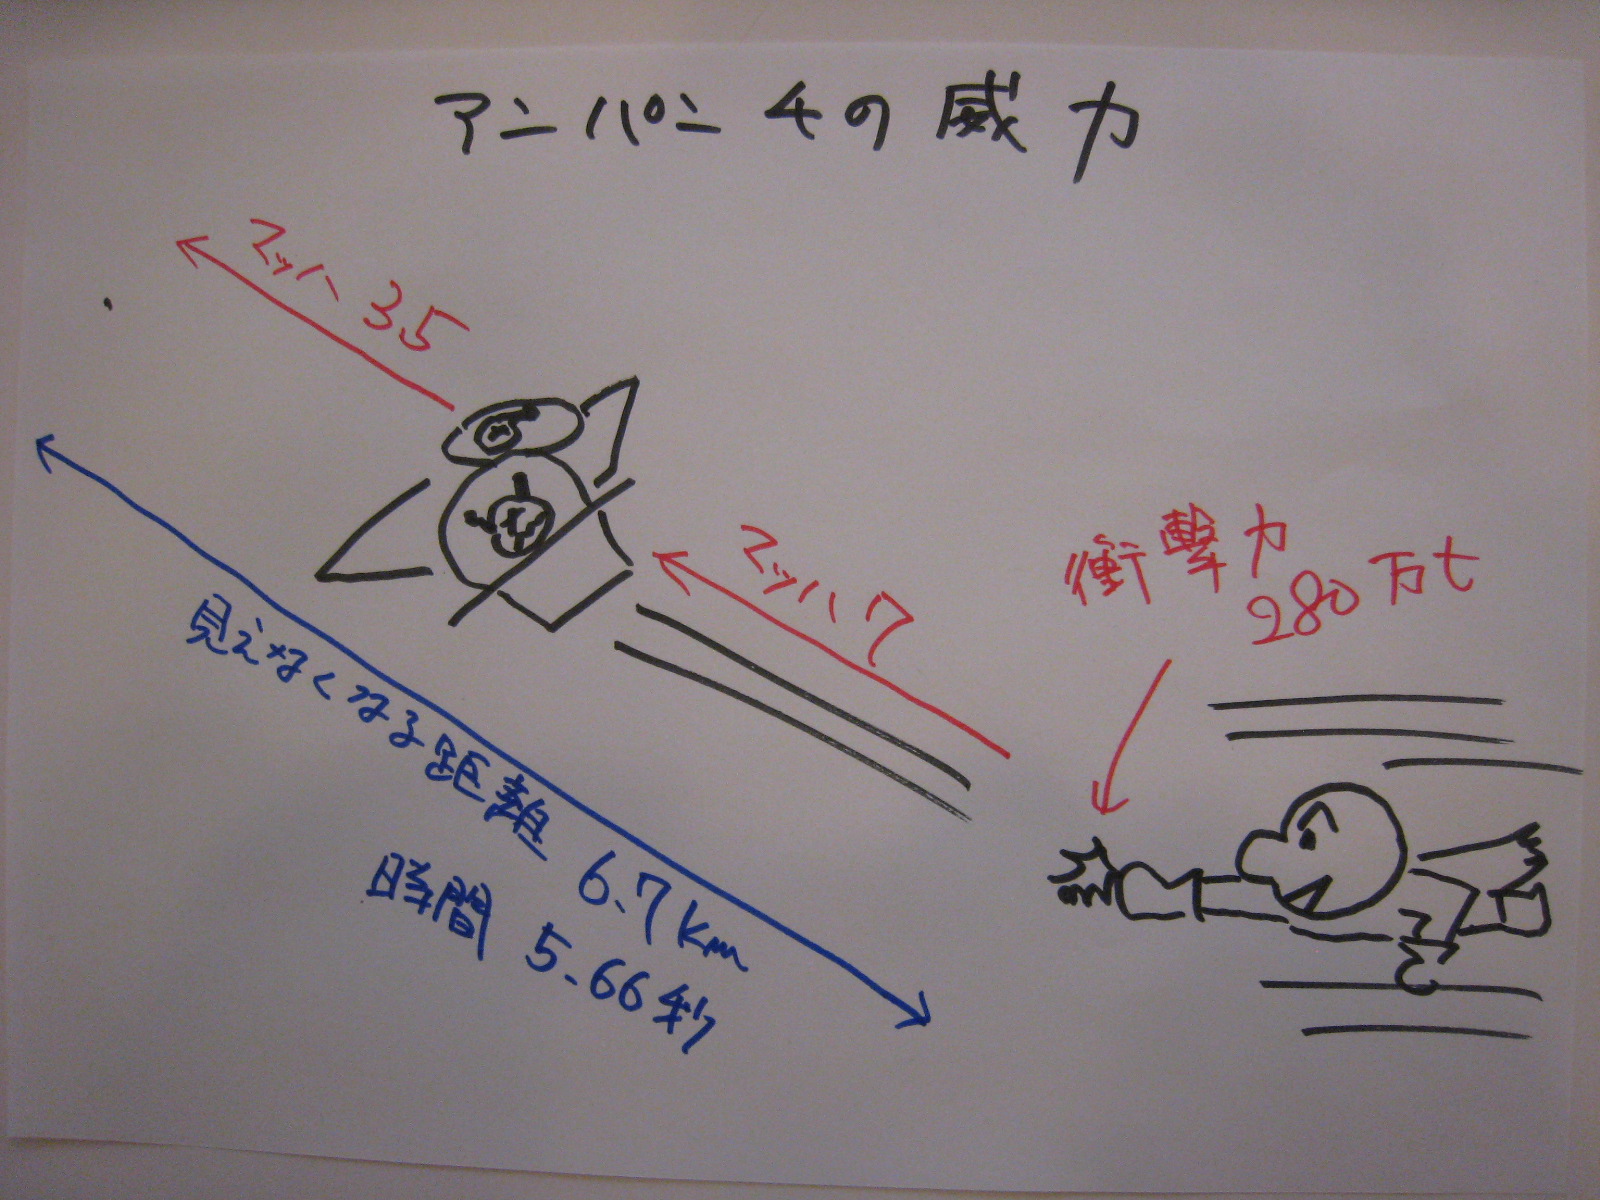 アンパンチの威力
マッハ 3.5
マッハ 7
衝撃力
280万t
見えなくなる距離 6.7km
時間 5.66秒